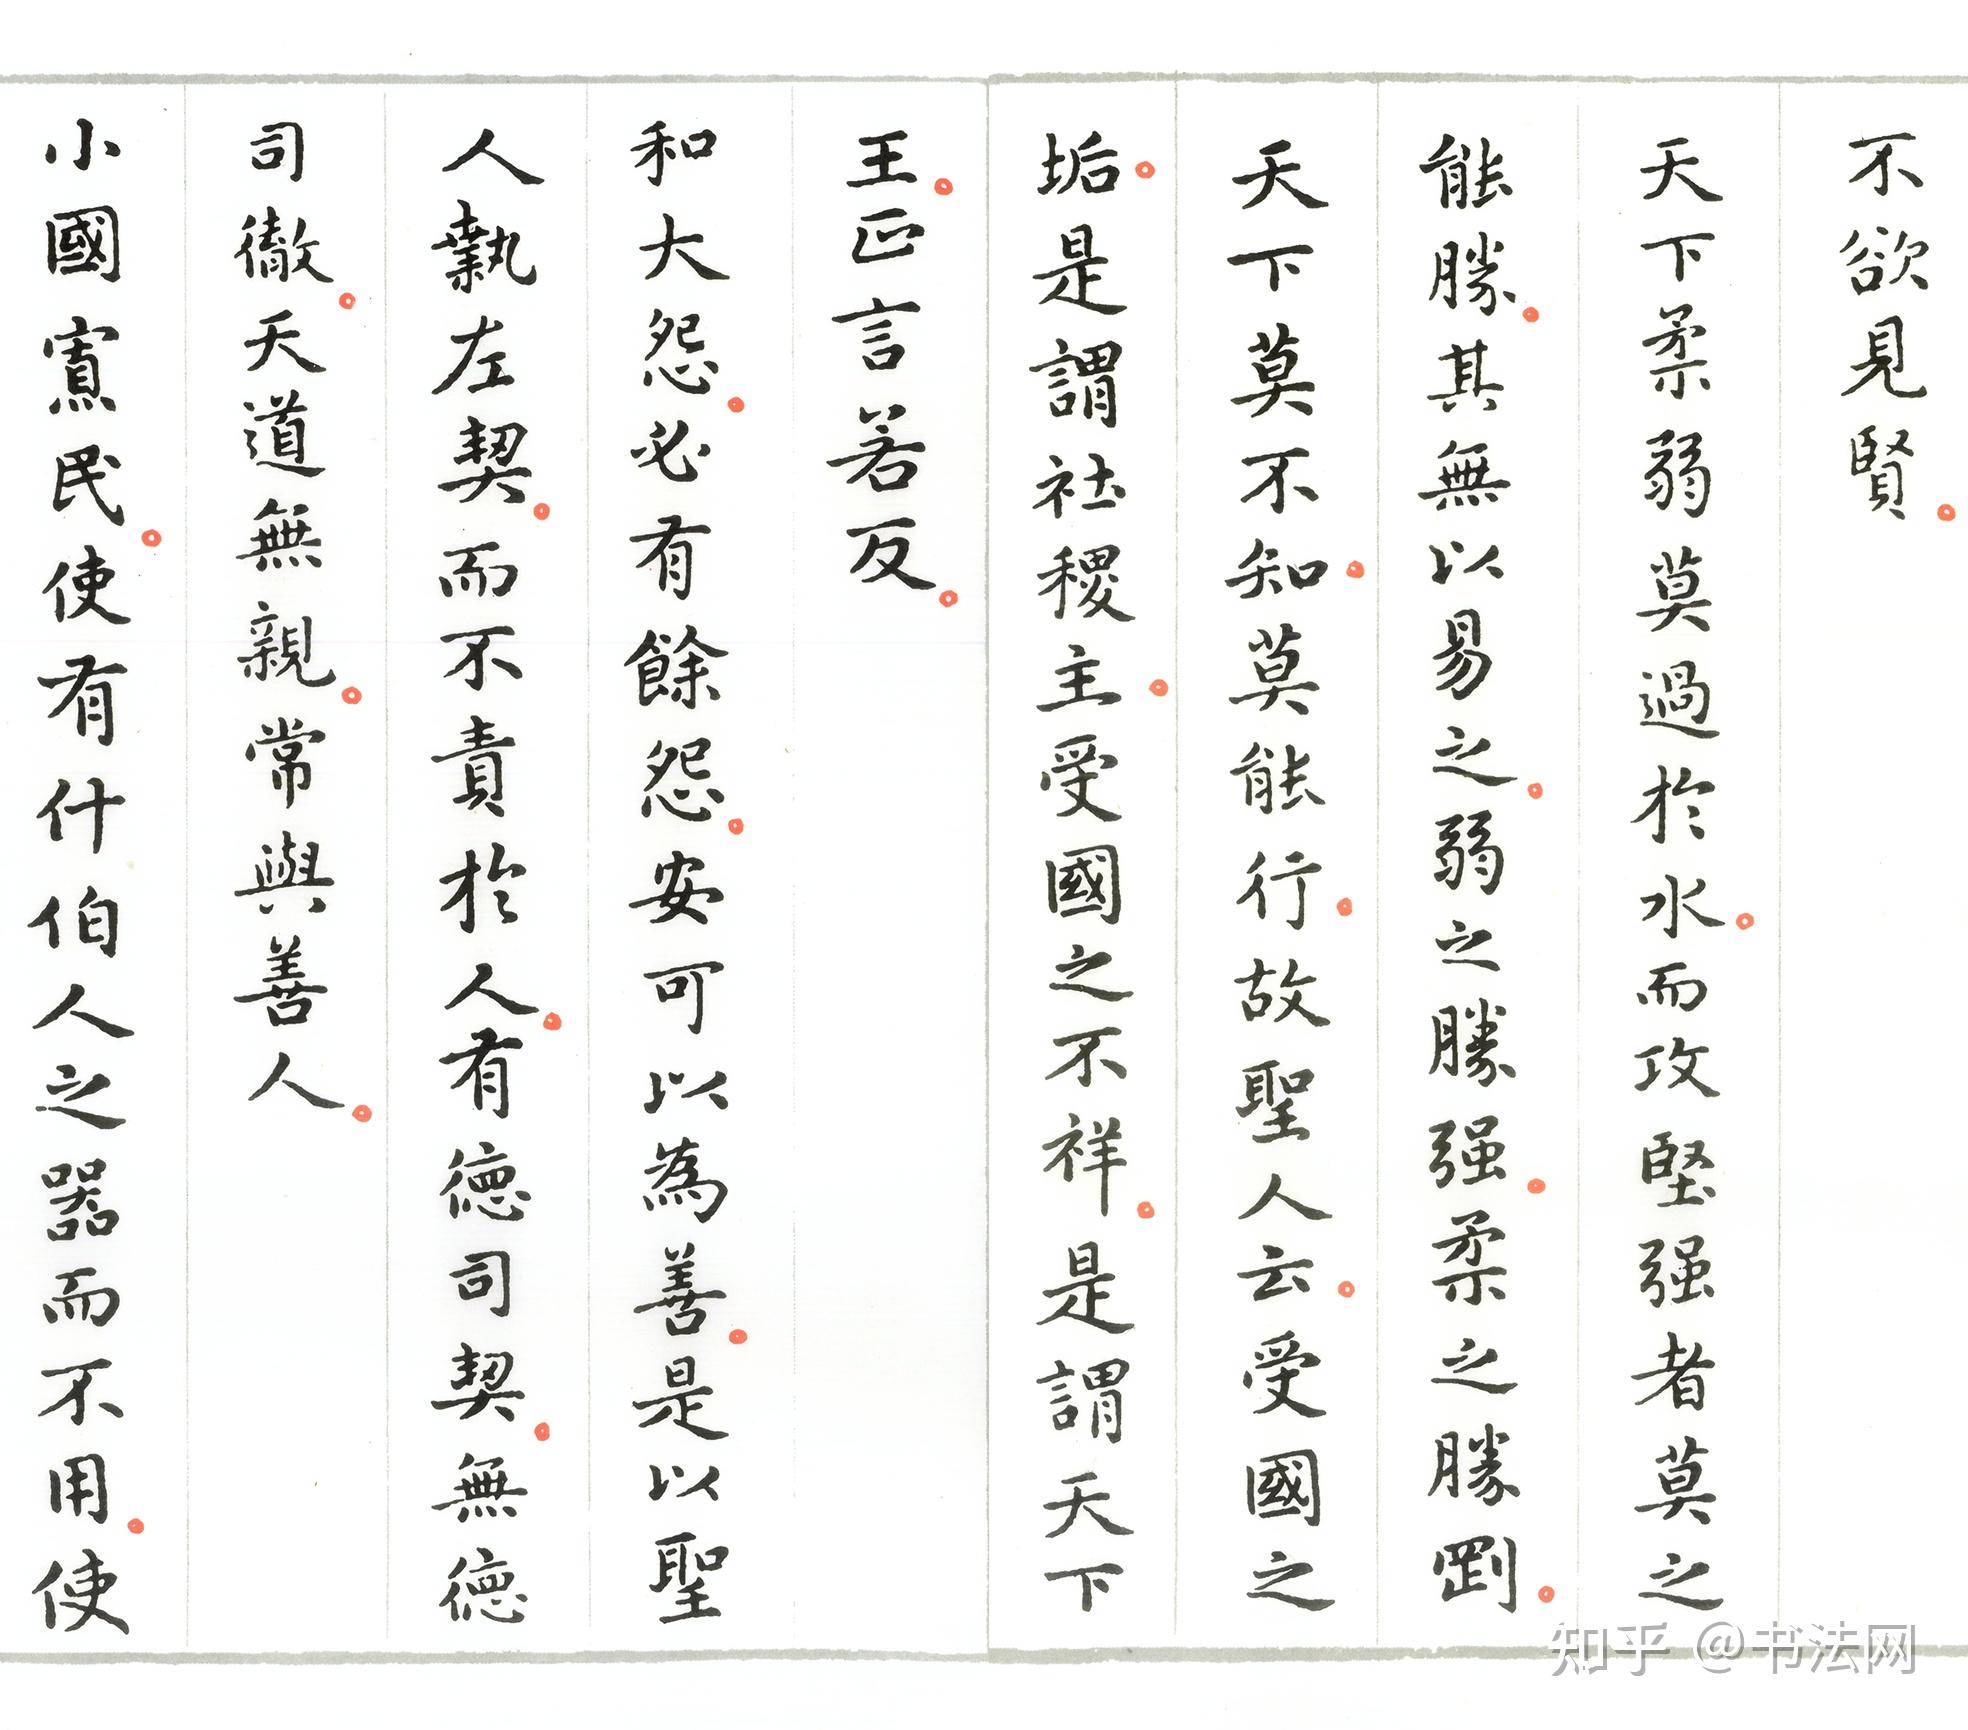 不欲見賢。
天下柔弱莫過於水。而攻堅强者莫之
能勝。其無以易之。弱之勝强。柔之勝剛。
天下莫不知。莫能行。故聖人云。受國之
垢。是謂社稷主。受國之不祥。是謂天下
王。正言若反。
和大怨。必有餘怨。安可以為善。是以聖
人執左契。而不責於人。有德司契。無德
司徹。天道無親。常與善人。
小國寡民。使有什伯人之器而不用。使
知乎 @书法网